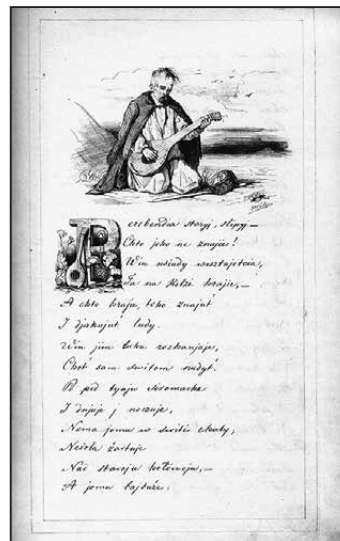 Perebendia staryj, slipyj —
Chto joho ne znaje!
Win usiudy
Ta na kobzi hraje, —
A chto hraje, toho znajut'
I djakujut' ludy.
Win jim tuhu rozhaniaje,
Choť sam switom nudyt'.
Po pid tynju siromacha
I dniuje j noczuje,
Nema jomu w switi chaty,
Nedola żartuje
Nad staroju hołowoju, —
A jomu bajduże.